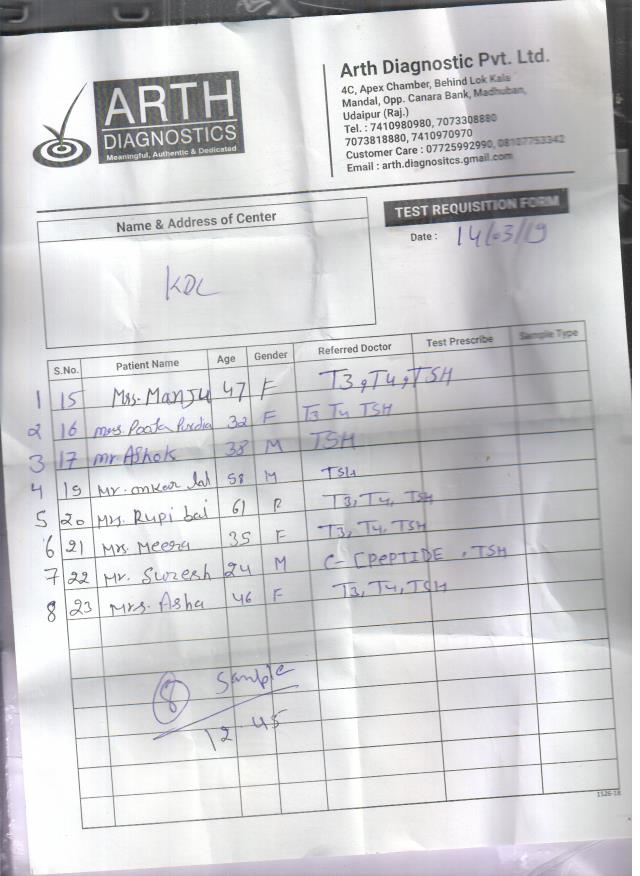 ARTH
DIAGNOSTICS
Meaningful, Authentic & Dedicated
Arth Diagnostic Pvt. Ltd.
4C, Apex Chamber, Behind Lok Kala
Mandal, Opp. Canara Bank, Madhuban,
Udaipur (Raj.)
Tel. : 7410980980, 7073308880
7073818880, 7410970970
Customer Care : 07725992990, 08107753342
Email : arth.diagnositcs.gmail.com
Name & Address of Center
TEST REQUISITION FORM
Date : 14/03/19
KDL
S.No. Patient Name Age Gender Referred Doctor Test Prescribe Sample Type
1 15 Mrs. Manju 47 F T3, T4, TSH
2 16 Mrs. Pooja 32 F T3 T4 TSH
3 17 Mr Ashok 38 M TSH
4 19 Mr. onkar lal 58 M TSH
5 20 Mrs. Rupi bai 61 F T3, T4, TSH
6 21 Mrs. Meera 35 F T3, T4, TSH
7 22 Mr. Suresh 24 M C-CPEPTIDE, TSH
8 23 Mrs. Asha 46 F T3, T4, TSH
8 Sample
12 45
1526-18